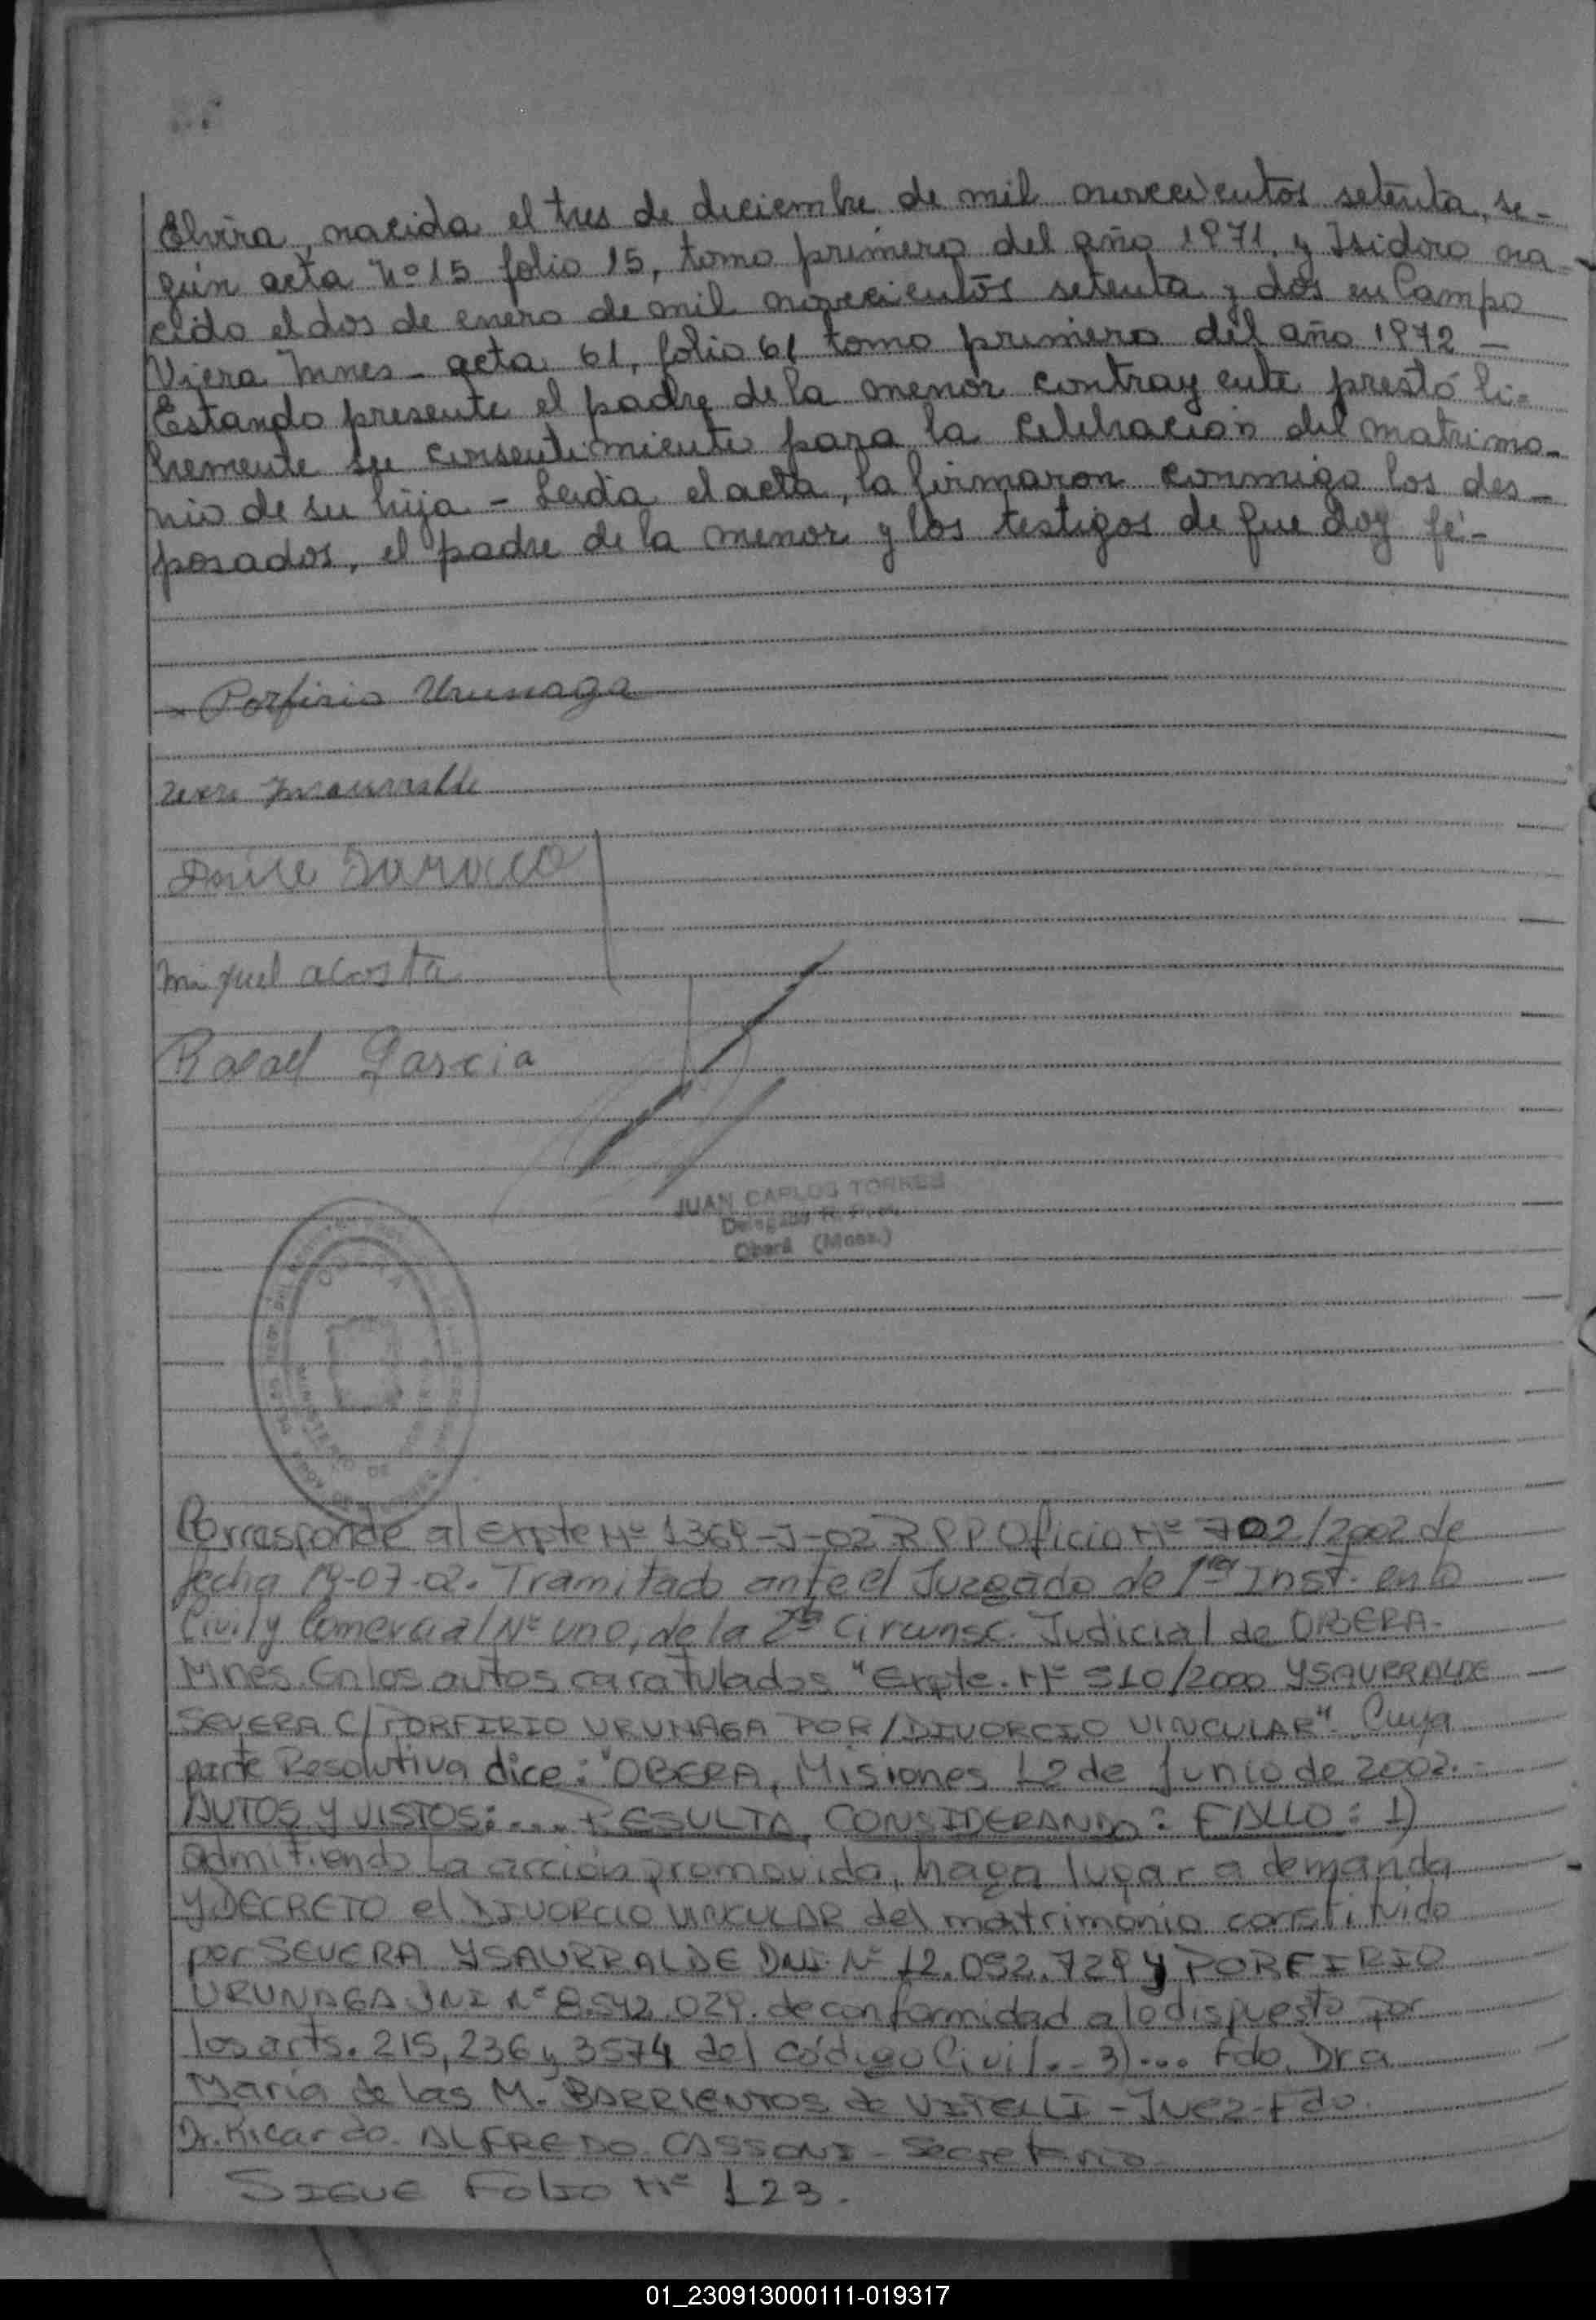 Elvira, nacida el tres de diciembre de mil novecientos setenta, se-
gún acta Nº 15 folio 15, tomo primero del año 1971, y Isidoro na-
cido el dos de enero de mil novecientos setenta y dos en Campo
Viera Mnes - acta 61, folio 61 tomo primero del año 1972 -
Estando presente el padre de la menor contrayente prestó li-
bremente su consentimiento para la celebración del matrimo-
nio de su hija - Leída el acta, la firmaron conmigo los des-
posados, el padre de la menor y los testigos de que doy fé -
Porfirio Urunaga
Miguel acosta
Rafael Garcia
JUAN CARLOS TORRES
Delegado R. P.
Oberá (Mnes.)
MINISTERIO DE
Corresponde al Expte Nº 1369-J-02 R P P Oficio Nº 702/2002 de
fecha 19-07-02. Tramitado ante el Juzgado de 1ra Inst. en lo
Civil y Comercial Nº uno, de la 2da Circunsc. Judicial de OBERA-
Mnes. En los autos caratulados "Expte. Nº 510/2000 YSAURRALDE
SEVERA C/ PORFIRIO URUNAGA POR/DIVORCIO VINCULAR". Cuya
parte Resolutiva dice: "OBERA, Misiones 12 de Junio de 2002.-
AUTOS Y VISTOS:.... RESULTA, CONSIDERANDO: FALLO: 1)
admitiendo la acción promovida, haga lugar a demanda
Y DECRETO el DIVORCIO VINCULAR del matrimonio constituido
por SEVERA YSAURRALDE DNI Nº 12.052.729 y PORFIRIO
URUNAGA DNI Nº 8.542.029. de conformidad a lo dispuesto por
los arts. 215, 236 y 3574 del código Civil.- 3)... Fdo. Dra
María de las M. BARRIENTOS de VITELLI - Juez - Fdo.
Dr. Ricardo ALFREDO CASSONI - Secretario-
SIGUE Folio Nº 123.